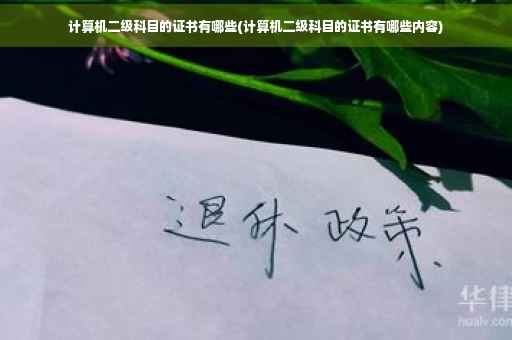 计算机二级科目的证书有哪些(计算机二级科目的证书有哪些内容)
退休 政策
华律
hualv.com